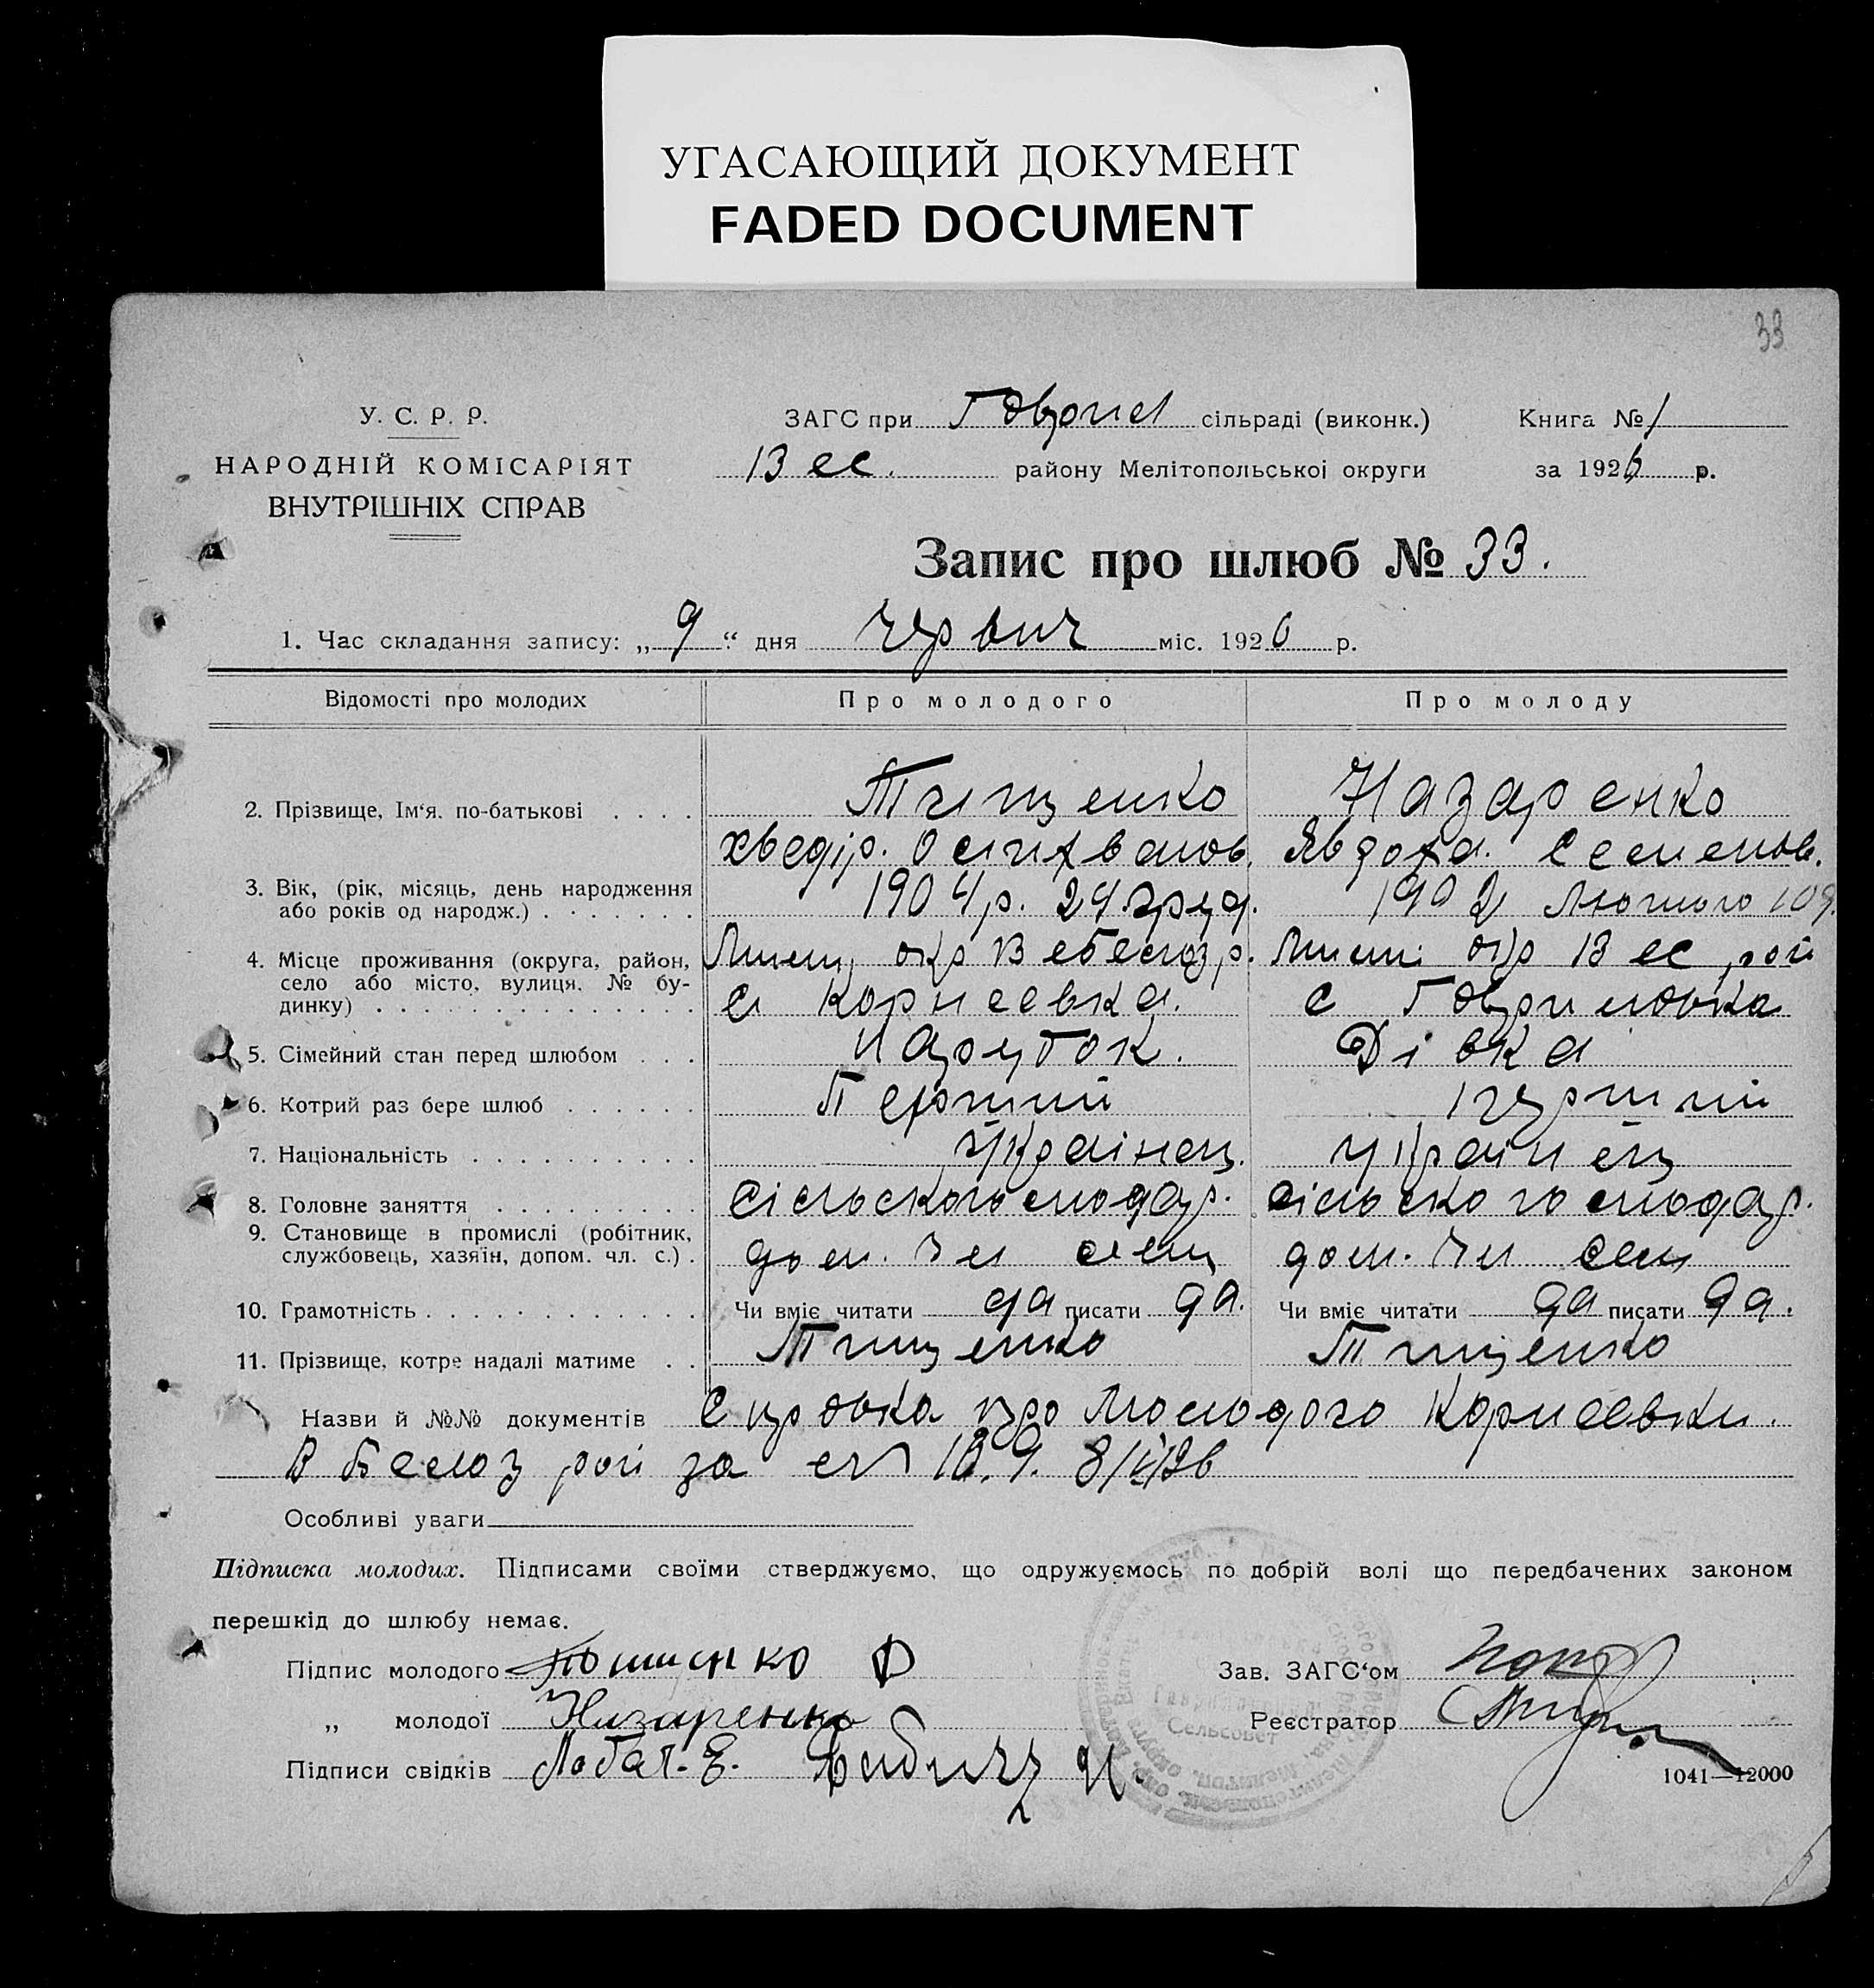 УГАСАЮЩИЙ ДОКУМЕНТ
FADED DOCUMENT
33
У. С. Р. Р.
НАРОДНІЙ КОМІСАРІЯТ
ВНУТРІШНІХ СПРАВ
ЗАГС при Гаврил сільраді (виконк.)
Книга № 1
В ес. району Мелітопольської округи
за 1926 р.
Запис про шлюб № 33.
1. Час складання запису: „ 9 “ дня червня міс. 1926 р.
Відомості про молодих
Про молодого
Про молоду
2. Прізвище, Ім‘я. по-батькові . . . .
Тищенко
Назаренко
хведір. Осипханов.
Явдоха. Семенов.
3. Вік, (рік, місяць, день народження
або років од народж.) . . . . . . .
1904 р. 24 груд.
1902 Лютого 10 д.
4. Місце проживання (округа, район,
село або місто, вулиця, № бу-
динку) . . . . . . . . . . . . . .
Мелит окр В ебелоз р.
Мелит окр В ес рой
с Корнеевка.
с Гавриловка
5. Сімейний стан перед шлюбом . . .
парубок.
Дівка
6. Котрий раз бере шлюб . . . . . .
Перший
перший
7. Національність . . . . . . . . . .
Українец.
українец
8. Головне заняття . . . . . . . . .
сільськогосподар.
сільськогосподар.
9. Становище в промислі (робітник,
службовець, хазяїн, допом. чл. с.) .
дом. чл сем
дом. чл сем
10. Грамотність . . . . . . . . . . . .
Чи вміє читати да писати да.
Чи вміє читати да писати да.
11. Прізвище, котре надалі матиме . .
Тищенко
Тищенко
Назви й №№ документів Справка про Молодого Корнеевки.
В Белоз рой за
Особливі уваги
Підписка молодих. Підписами своїми стверджуємо, що одружуємось по добрій волі що передбачених законом
перешкід до шлюбу немає.
Підпис молодого Тишенко Ф
Зав. ЗАГС‘ом
„ молодої Назаренко
Реєстратор
Підписи свідків Лобач. Е.
Сельсовет
1041—12000